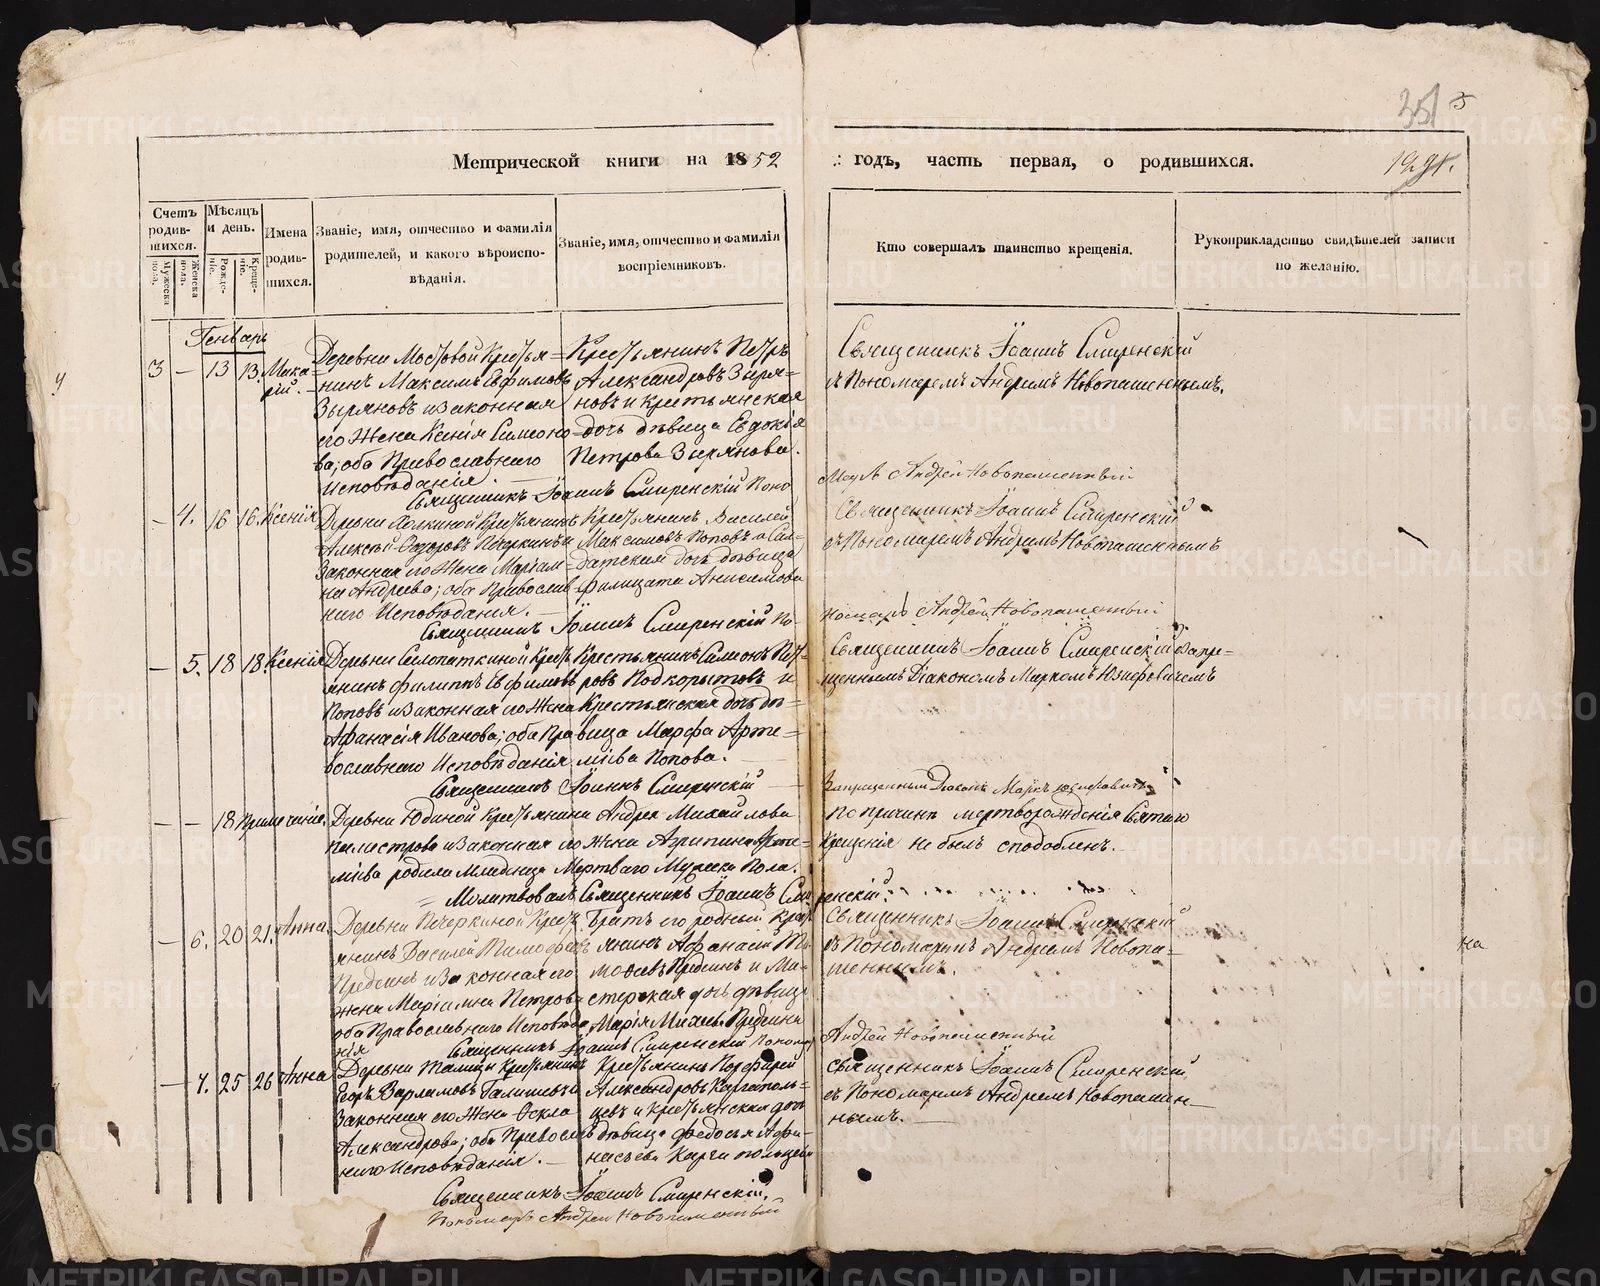 351
Метрической книги на 1852 годъ, часть первая, о родившихся.
Счетъ родив-шихся.
Мужеска пола.
Женска пола.
Мѣсяцъ и день.
Рожде-ніе.
Креще-ніе.
Имена родив-шихся.
Званіе, имя, отчество и фамилія
родителей, и какого вѣроиспо-
вѣданія.
Званіе, имя, отчество и фамилія
воспріемниковъ.
Кто совершалъ таинство крещенія.
Рукоприкладство свидѣтелей записи
по желанію.
Генварь
3 – 13 13. Мака-
рій.
Деревни Мостовой Крестья-
нинъ Максимъ Ефимовъ
Зыряновъ и законная
его Жена Ксенія Симеоно-
ва; оба Православнаго
Исповѣданія.
Крестьянинъ Петръ
Александровъ Зыря-
новъ и крестьянская
дочь дѣвица Евдокія
Петрова Зырянова.
Священникъ Іоаннъ Смиренскій
съ Пономаремъ Андреемъ Новопашеннымъ.
Священникъ Іоаннъ Смиренскій Поно
Андрей Новопашенный
– 4. 16 16. Ксенія
Крестьянинъ Василей
Алексѣй Ѳедоровъ Печеркинъ и
Максимовъ Поповъ и Сол-
Законная его Жена Маріам-
датская дочь дѣвица
на Андреева; оба Православ-
Филицата Анисимова
наго Исповѣданія.
Священникъ Іоаннъ Смиренскій
съ Пономаремъ Андреемъ Новопашеннымъ
Священникъ Іоаннъ Смиренскій По-
Андрей Новопашенный
– 5. 18 18. Ксенія
Крестьянинъ Симеонъ Пет-
янинъ Филиппъ Ефимовъ
ровъ Подкорытовъ и
Поповъ и Законная его Жена
Крестьянская дочь дѣ-
Афанасія Иванова; оба Пра-
вица Марфа Арте-
вославнаго Исповѣданія
міева Попова.
Священникъ Іоаннъ Смиренскій съ Запре-
щеннымъ Діакономъ Маркомъ Юзефовичемъ
Священникъ Іоаннъ Смиренскій
Запрещенный Діаконъ Маркъ Юзефовичъ
– – 18 Примѣчаніе.
Деревни Юдиной Крестьянина Андрея Михайлова
и законная его Жена Агрипина Арте-
міева родила Младенца Мертваго Мужеска Пола.
По причинѣ мертворожденія Святаго
Крещенія не былъ сподобленъ.
Молитвовалъ Священникъ Іоаннъ Смиренскій
– 6. 20 21. Анна.
Деревни Печеркиной Крест-
янинъ Василей Тимофеевъ
Предеинъ и Законная его
жена Маріамна Петрова
оба Православнаго Исповѣда-
нія
Братъ его родный Крест-
янинъ Афанасій Ти-
мофеевъ Предеинъ и Ма-
стерская дочь дѣвица
Марія Предеина
Священникъ Іоаннъ Смиренскій
съ Пономаремъ Андреемъ Новопа-
шеннымъ.
Священникъ Іоаннъ Смиренскій Поном
Андрей Новопашенный
на
– 7. 25 26 Анна
Деревни Талицы Крестьянинъ
Егоръ Варламовъ
Законная его Жена Фекла
Александрова; оба Православ-
наго Исповѣданія.
Крестьянинъ Порфирей
Александровъ Каргаполь-
цевъ и Крестьянская дочь
дѣвица Федосья Афа-
насьева Каргапольцева
Священникъ Іоаннъ Смиренскій
съ Пономаремъ Андреемъ Новопашен-
нымъ.
Священникъ Іоаннъ Смиренскій,
Пономарь Андрей Новопашенный
METRIKI.GASO-URAL.RU